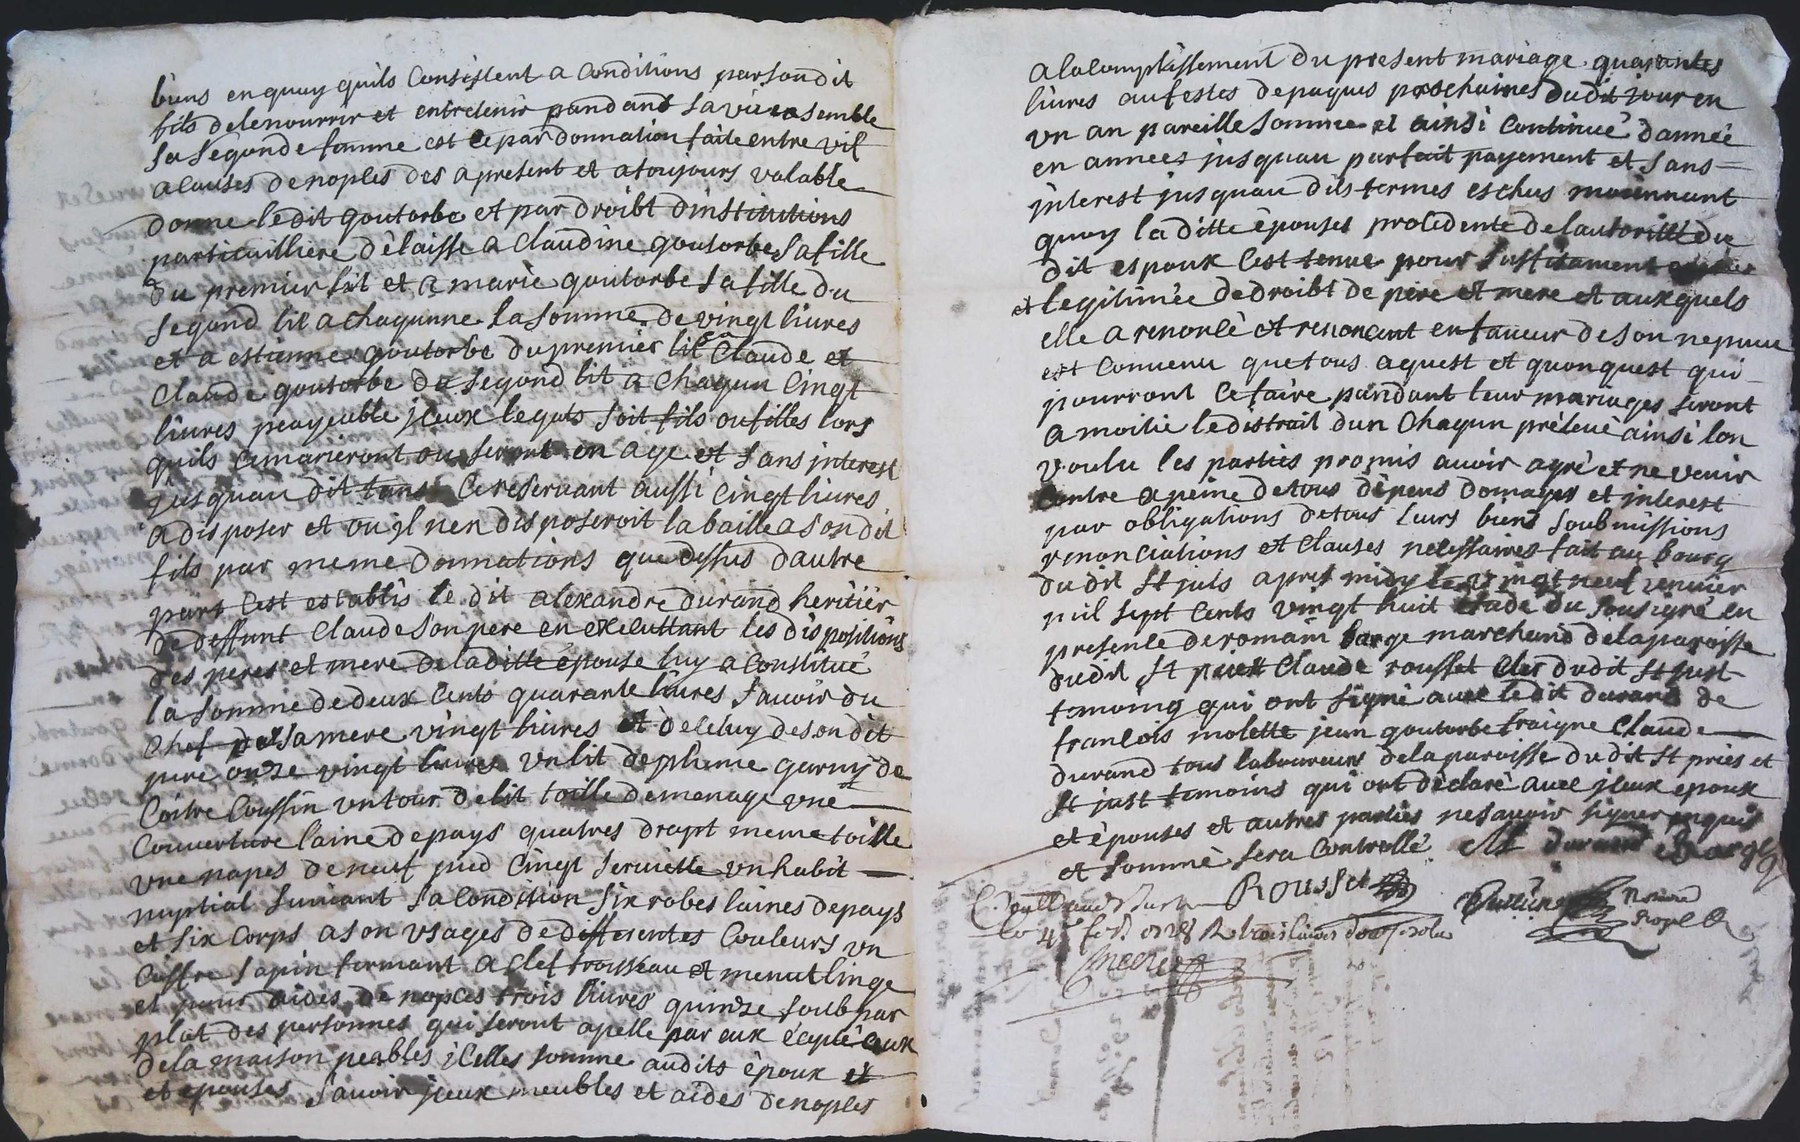 biens en quoy quils Consistent a Conditions par son dit
fils de le nourrir et entretenir pandant sa vie ensemble
sa segonde famme est ce par donnation faite entre vif
a causes de noples des apresent et a toujours valable
donne ledit goutorbe et par droibt dinstitutions
particuilliere dèlaisse a Claudine goutorbe sa fille
du premier lit et a marie goutorbe sa fille du
segond lit a chaqunne la somme de vingt livres
et a estienne goutorbe du premier lit Claude et
Claude goutorbe du segond lit a Chaqun Cingt
livres peayeable jceux leguts soit fils ou filles lors
quils cemarieront ou seront en age et sans jnterest
jusquau dit tans Cereservant aussi Cingt livres
a disposer et ou jl nen disposeroit la baille a son dit
fils par meme donnations que dessus dautre
part Cest establis le dit alexandre durand heritier
de deffunt Claude son pere en executtant les dispositions
des peres et mere de la ditte épouse luy a Constitué
la somme de deux Cents quarante livres savoir du
Chef de sa mere vingt livres et de celuy de son dit
pere onze vingt livres vn lit de plume garny de
Coitre Coussin vn tour de lit toille de menage vne
Couverture laine de pays quatres drapt meme toille
vne napes de neuf pied Cingt serviette vn habit
nuptial suivant sa Condition six robes laines de pays
et six Corps a son vsages de differentes Couleurs vn
Coffre sapin fermant a clef trousseau et menut linge
et pour aides de noples trois livres quinze soub par
plat des personnes qui seront apelle par eux éxepté Ceux
de la maison peables jcelles somme audits époux et
et epouses savoir jceux meubles et aides de noples
a lacomplissement du present mariage quarantes
livres au festes de paques prochaines dudit jour en
vn an pareille somme et ainsi Continué dannée
en annees jusquau parfait payement et sans
jnterest jusquau dits termes eschus moiennant
quoy la ditte épouses procedente de lautoritté du
dit espoux Cest tenue pour suffisament
et legitimée de droibt de pere et mere et auxquels
elle a renoncè et renoncent en faveur de son nepveu
est Convenu que tous aquest et quonquest qui
pourront ce faire pandant leur mariages seront
a moitie le distrait dun Chaqun prélevé ainsi lon
voulu les parties promis avoir agrè et ne venir
Contre a peine de tous dépens domages et interest
par obligations de tous leurs biens soubmissions
renonciations et Clauses necessaires fait au bourg
du dit St juls apres midy le vingt neuf jenvier
mil sept Cents vingt huit du sousigné en
presence de romain barge marchand de la paroisse
du dit St priest Claude rousset Cler dudit St just
temoing qui ont signé avec le dit durand de
francois molette jean goutorbe fraigne Claude
durand tous laboureurs de la paroisse du dit St pries et
St just temoins qui ont dèclarè avec jceux époux
et épouses et autres parties ne savoir signer enquis
et sommé sera Controllé durand Barge
Rousset
notaire
Royal